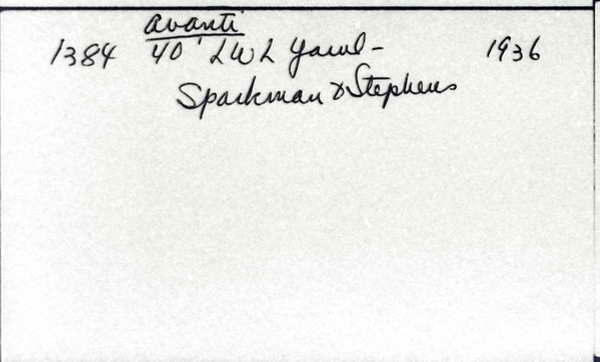 Avanti
1384 40' LWL Yawl - 1936
Sparkman & Stephens